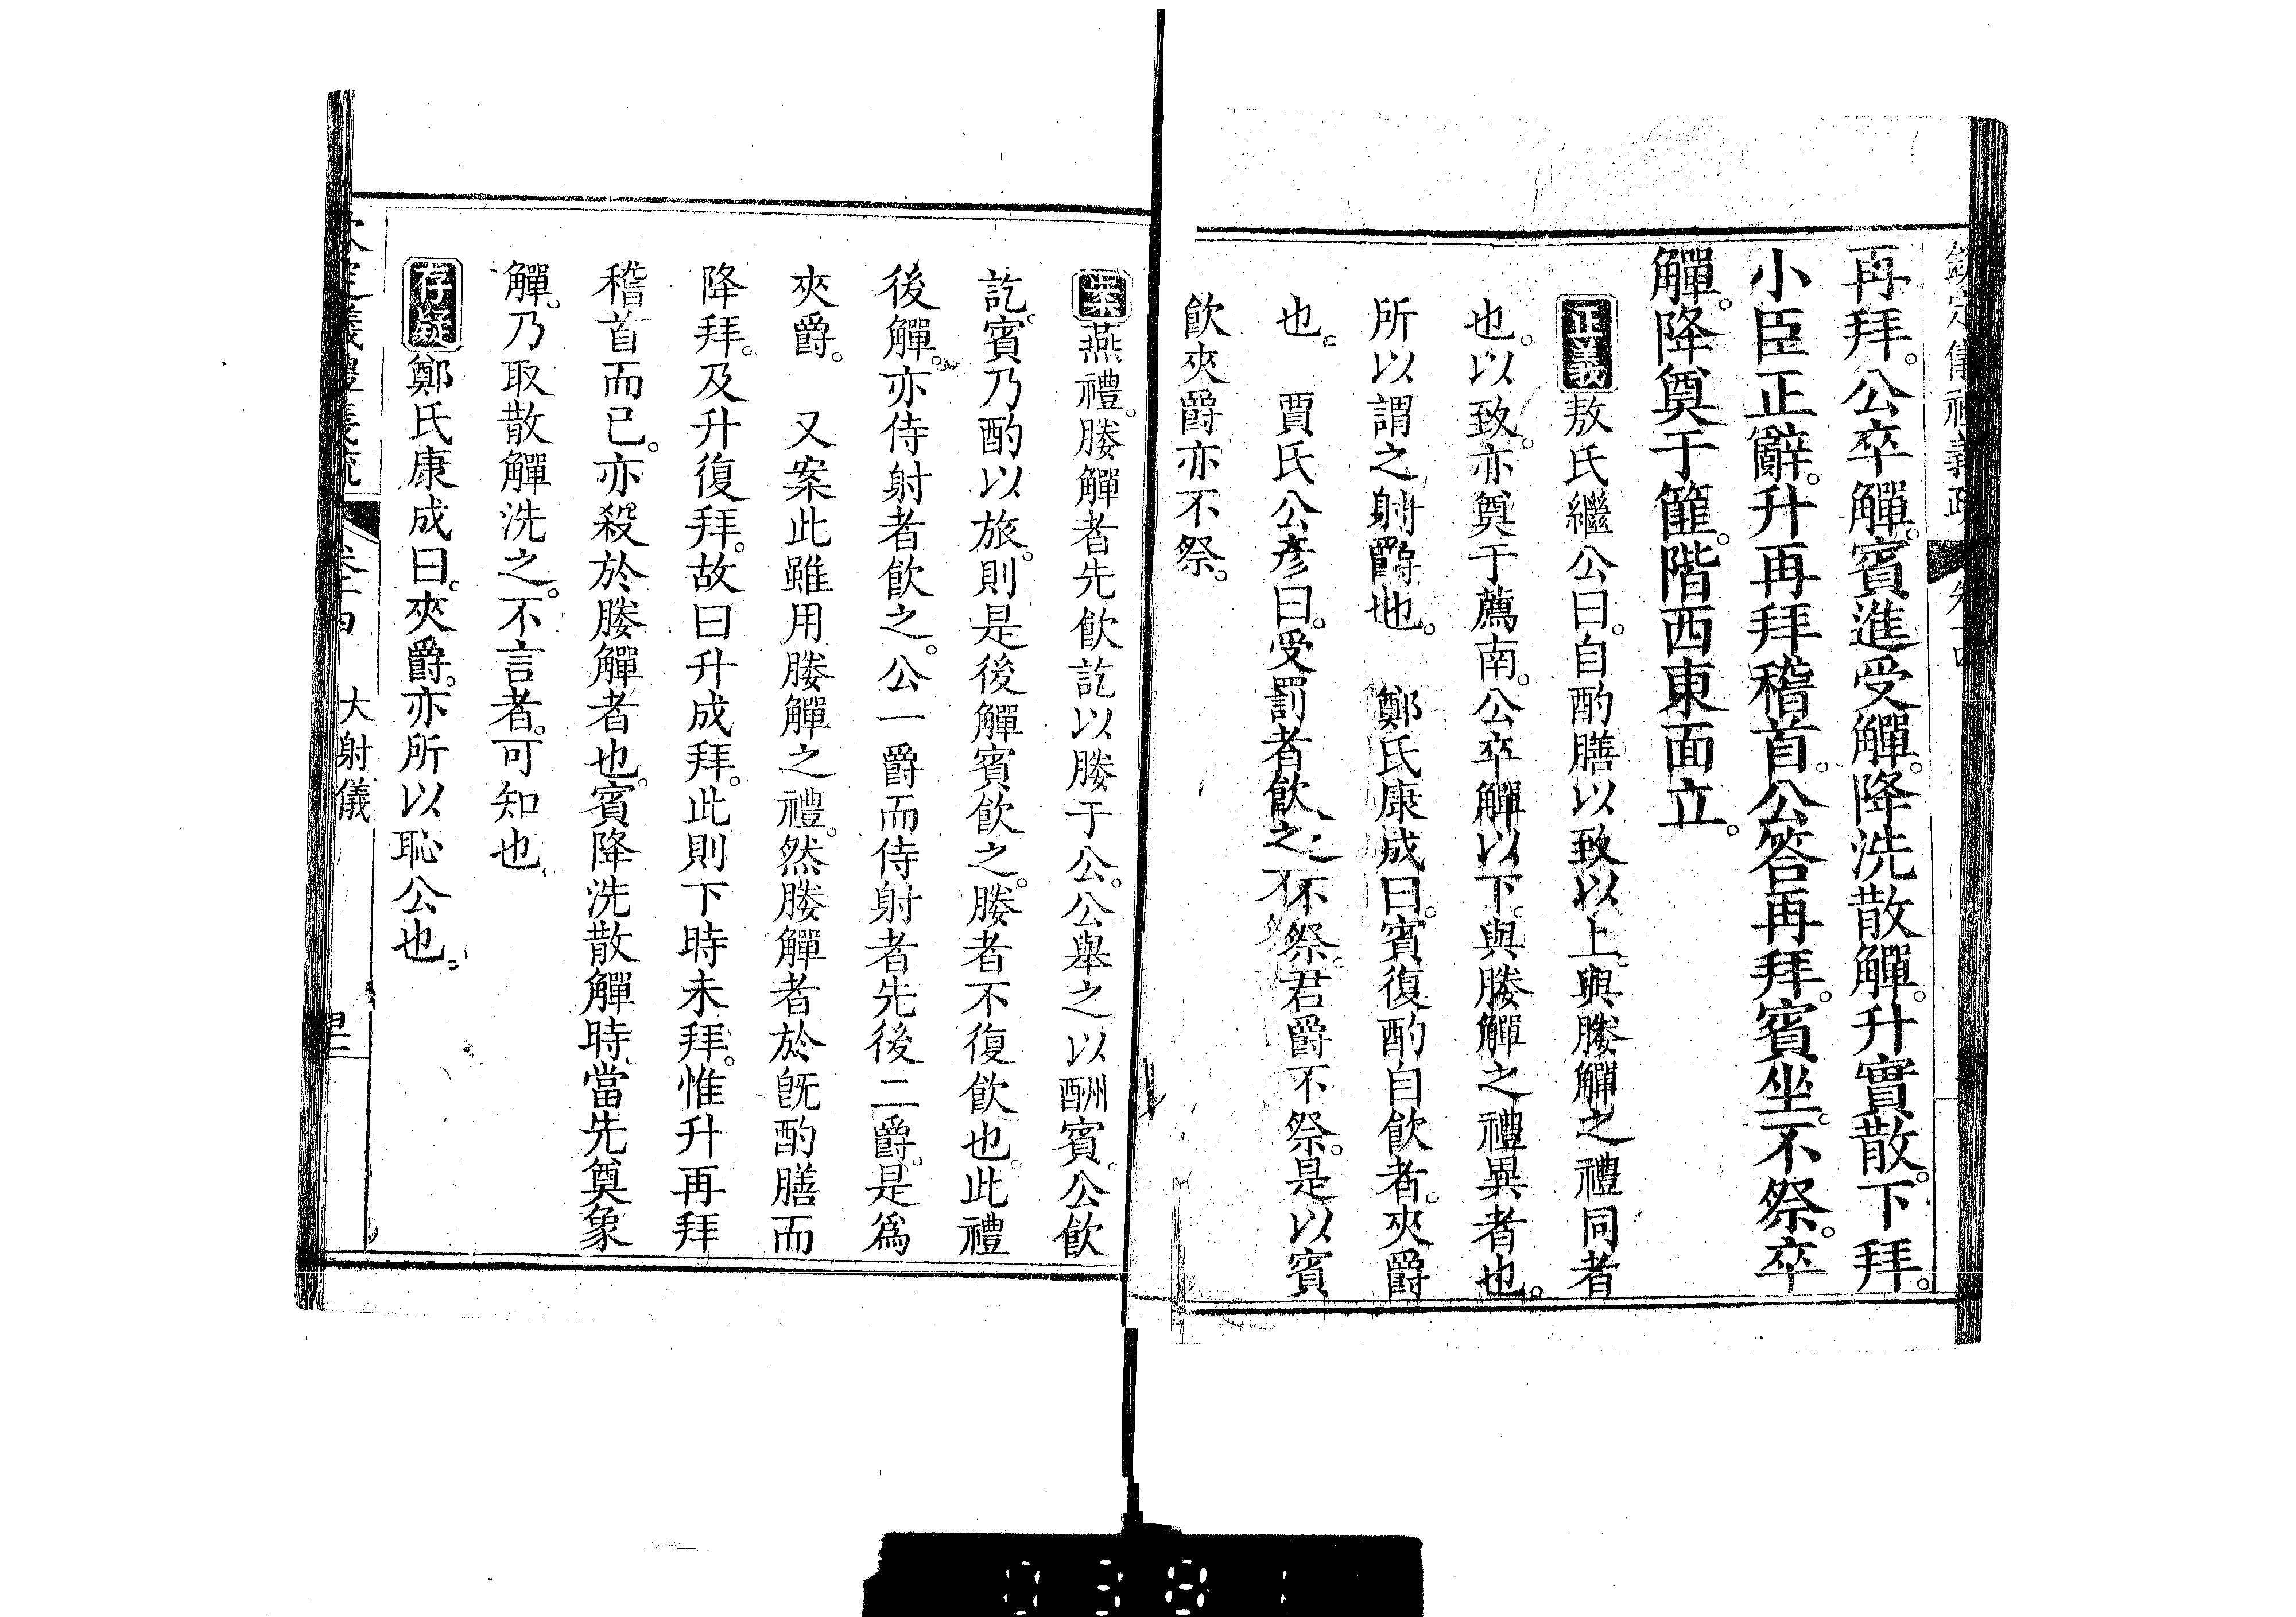 再拜。公卒觶。賓進受觶。降洗散觶。升實散。下拜。
小臣正辭。升再拜稽首。公答再拜。賓坐。不祭。卒
觶。降奠于篚。階西東面立。
正義敖氏繼公曰。自酌膳以致以上。與媵觶之禮同者
也。以致。亦奠于薦南。公卒觶以下。與媵觶之禮異者也。
所以謂之射爵也。　鄭氏康成曰。賓復酌自飲者。夾爵
也。　賈氏公彥曰。受罰者飲之不祭。君爵不祭。是以賓
飲夾爵亦不祭。
案燕禮。媵觶者先飲訖以媵于公。公舉之以酬賓。公飲
訖。賓乃酌以旅。則是後觶賓飲之。媵者不復飲也。此禮
後觶。亦侍射者飲之。公一爵而侍射者先後二爵。是爲
夾爵。　又案此雖用媵觶之禮。然媵觶者於旣酌膳而
降拜。及升復拜。故曰升成拜。此則下時未拜。惟升再拜
稽首而已。亦殺於媵觶者也。賓降洗散觶時當先奠象
觶。乃取散觶洗之。不言者。可知也
存疑鄭氏康成曰。夾爵。亦所以恥公也。
大射儀